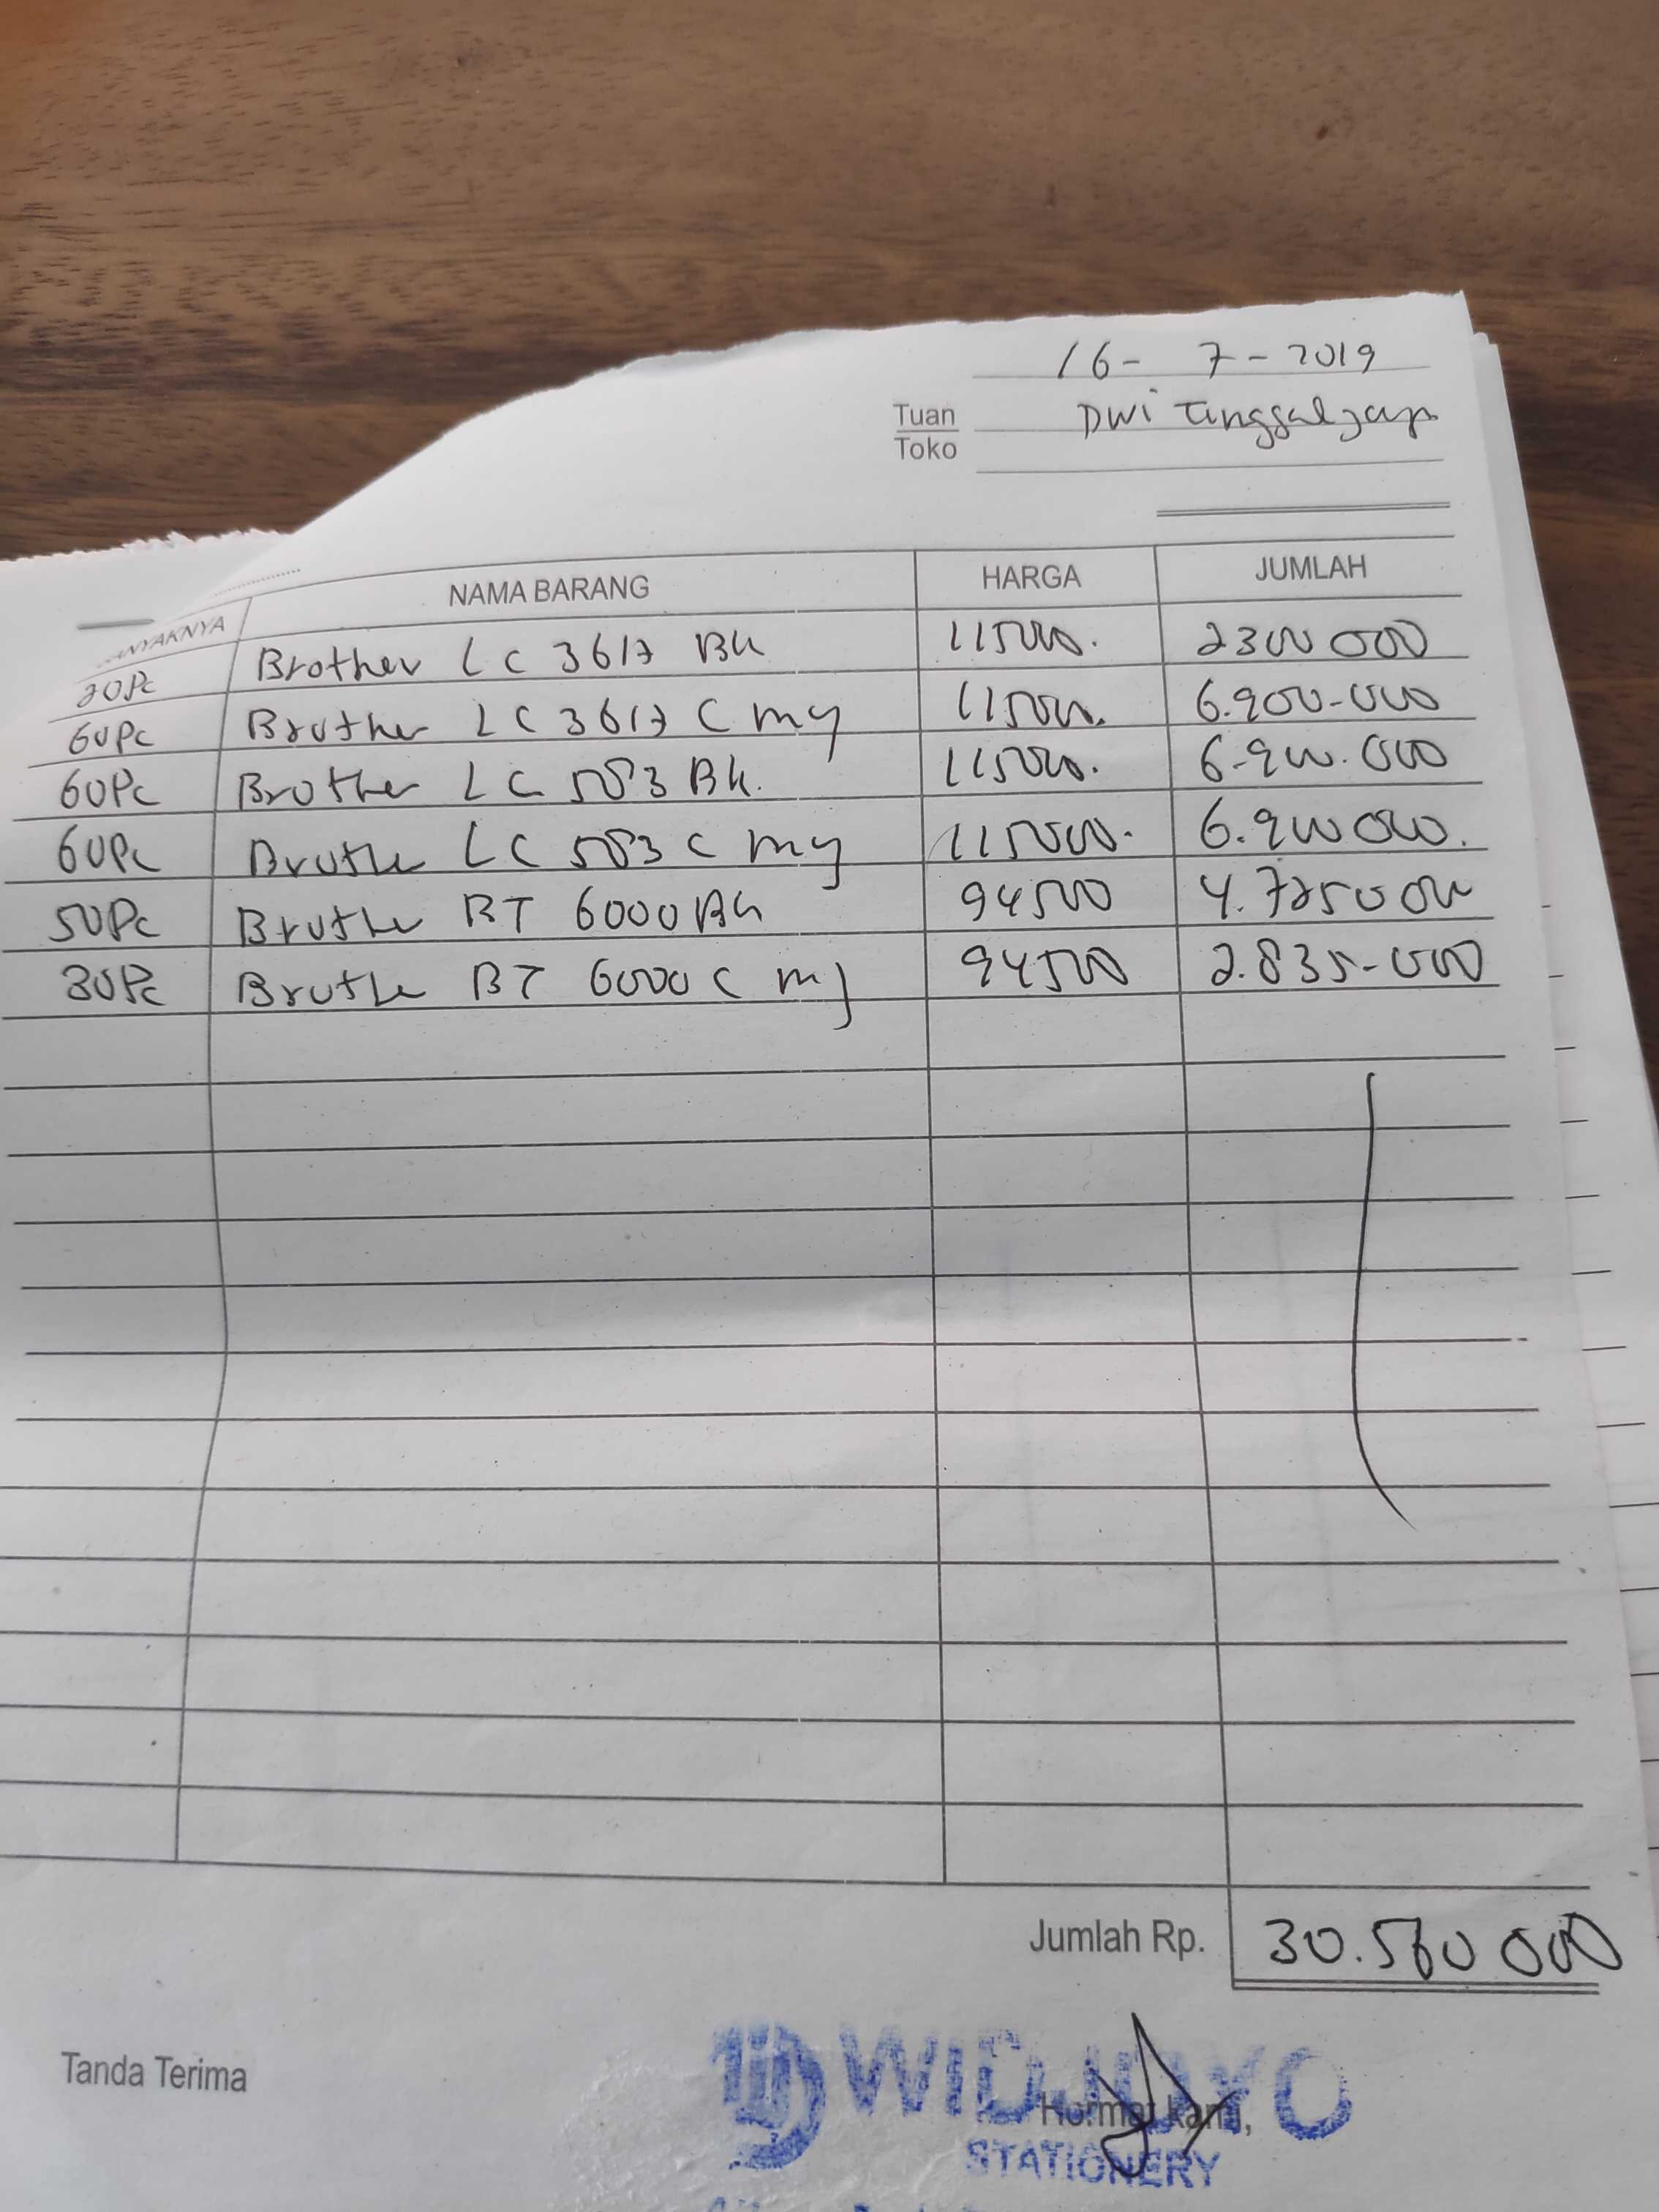 16- 7-2019
Tuan Dwi Tunggal Jaya
Toko
NYAKNYA NAMA BARANG HARGA JUMLAH
20Pc Brother LC 3617 BK 115000. 2300 000
60Pc Brother LC 3617 C my 115000. 6.900-000
60Pc Brother LC 583 BK. 115000. 6-900.000
60Pc Brothe LC 583 C my 115000. 6.900000.
50Pc Brothe BT 6000 BK 94500 4.725000
30Pc Brothe BT 6000 C my 94500 2.835-000
Jumlah Rp. 30.560 000
Tanda Terima
Hormat kami,
WIDJOYO
STATIONERY